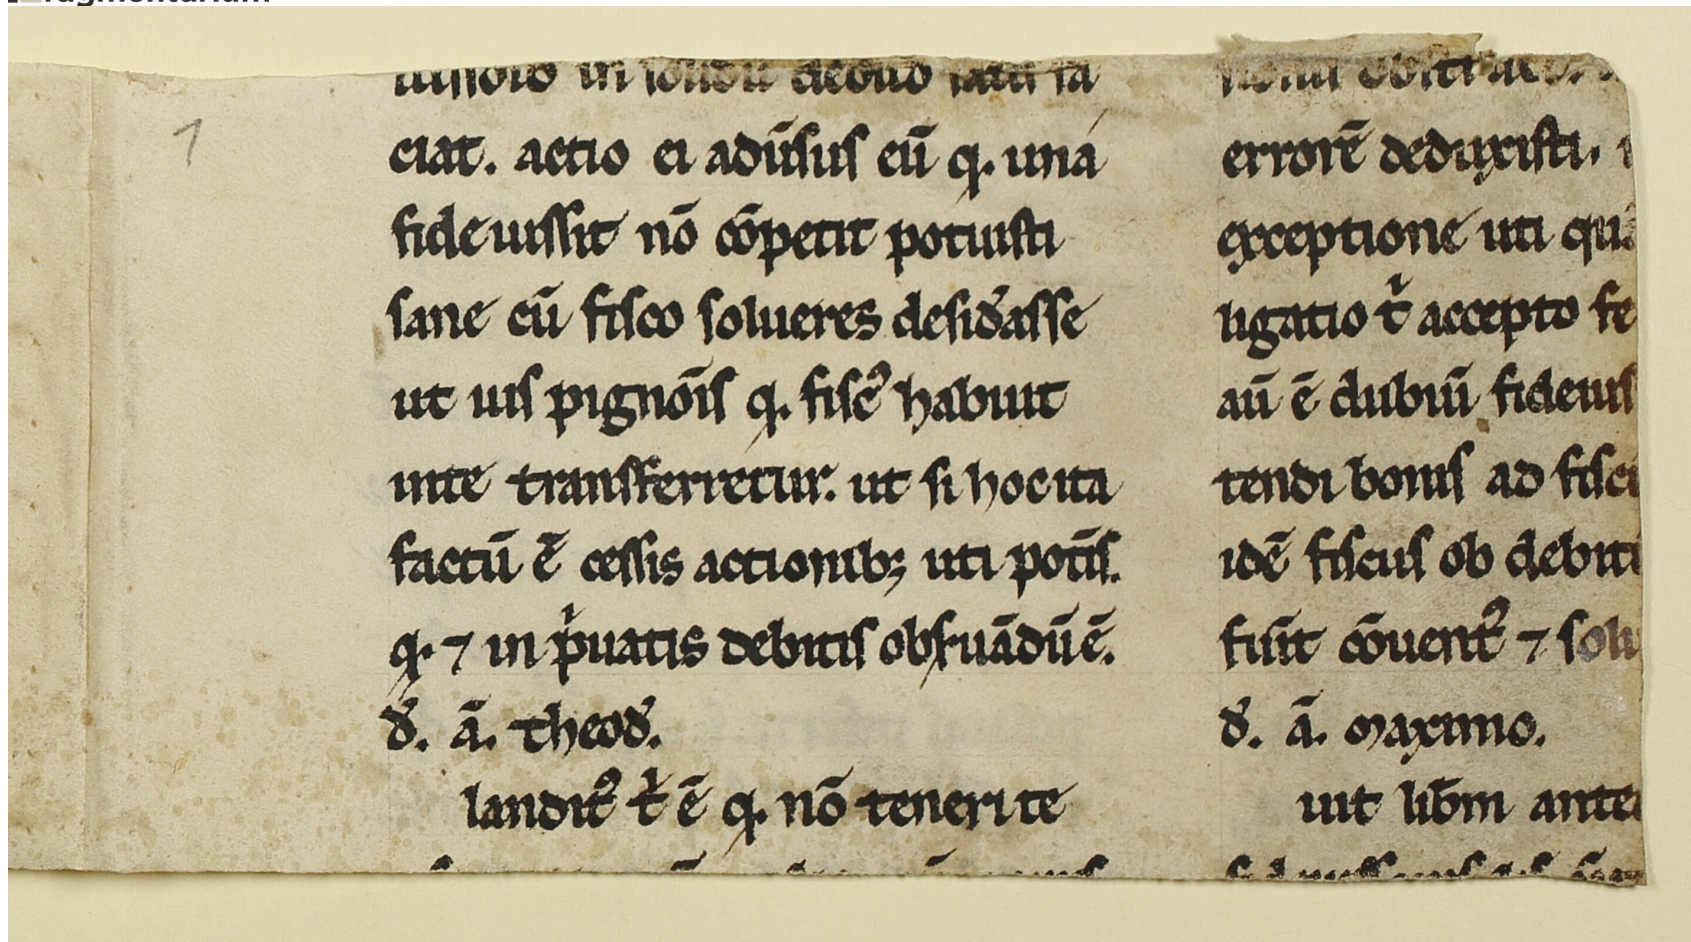 1
ciat. actio ei adu̅sus eu̅ q. una
fideiussit no̅ co̅petit potuisti
sane cu̅ fisco solueres desid̓asse
ut uis pigno̅is q. fisc᾽ habuit
inte transferretur. ut si hoc ita
factu̅ e̅ cessis actionib; uti pot̅is.
q. ⁊ in p̍uatis debitis obseruādū ē.
d̓. a̅. theod̓.
landit᾽ t̍ e̅ q. no̅ teneri te
errore̅ deduxisti.
exceptione uti
ligatio t̍ accepto fe
au̅ e̅ dubiu̅ fideius
tendi bonis ad fisci
ide̅ fiscus ob debiti
fu̅it co̅uent᾽ ⁊ solu
d̓. a̅. maximo.
uit lib̅m ante